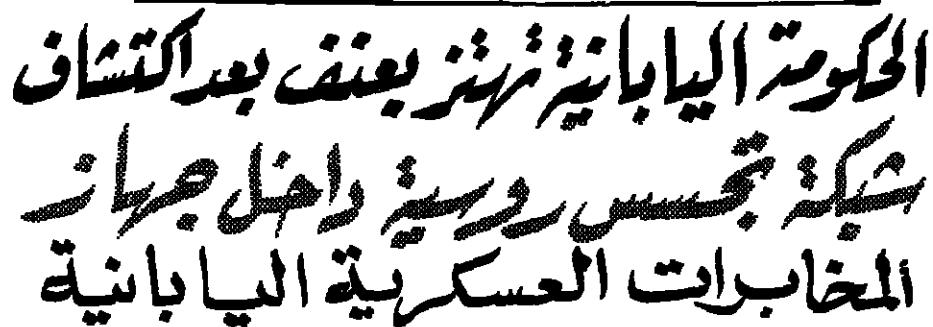 الحكومة اليابانية تهتز بعنف بعد اكتشاف
شبكة تجسس روسية داخل جهاز
المخابرات العسكرية اليابانية